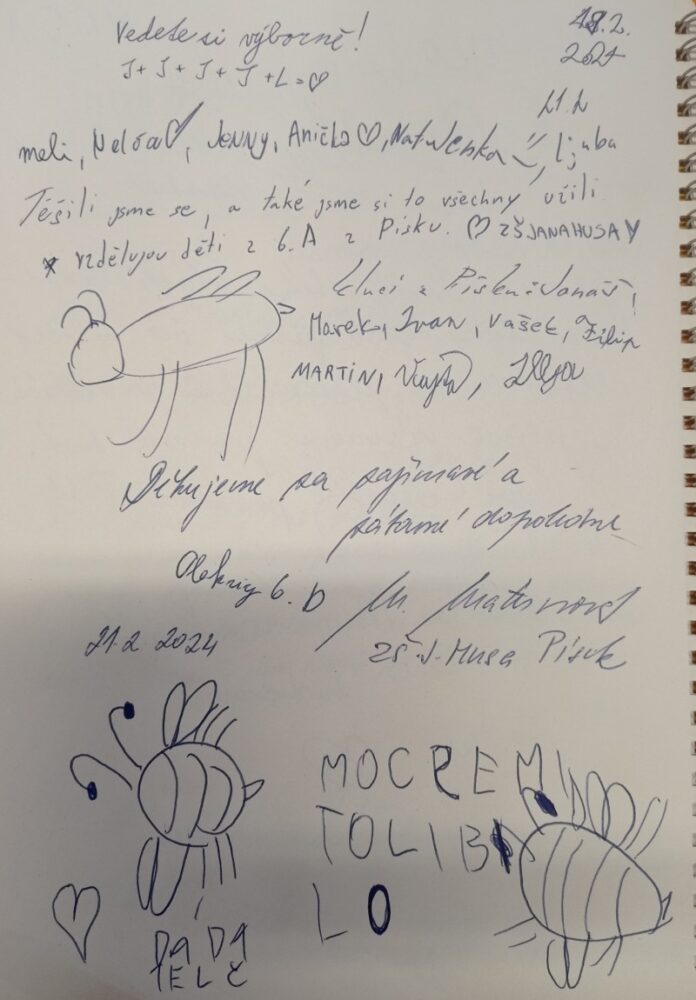 Vedete si výborně!
J + J + J + J + L = ♡
2.
meli, Nelča ♡, JENNY, Anička ♡, Natulenka, Ljuba
Těšili jsme se, a také jsme si to všechny užili.
vzdělujou děti z 6.A z Písku. ♡ ZŠ JANA HUSA
Kluci z Písku: Jonáš,
Marek, Ivan, Vašek, a Filip
MARTIN, Vojta, Illya
Děkujeme za zajímavé a
dopoledne
6. D
ZŠ J. Husa Písek
21.2. 2024
MOC SE MI
TO LIBI
LO